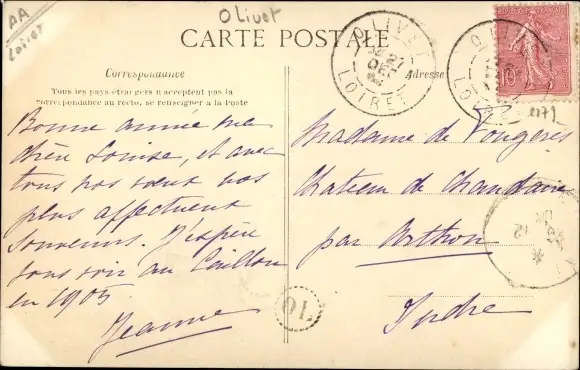 AA
Loiret
Olivet
CARTE POSTALE
Correspondance
Tous les pays étrangers n'acceptent pas la
correspondance au recto, se renseigner à la Poste
Bonne année ma
chère Louise, et avec
tous nos voeux nos
plus affectueux
souvenirs. J'espère
vous voir au Caillou
en 1905.
Jeanne
Adresse
OLIVET
27
DEC
LOIRET
OLIVET
10
1179
Madame de Vougères
Chateau de Chandaire
par Arthon
Indre
10